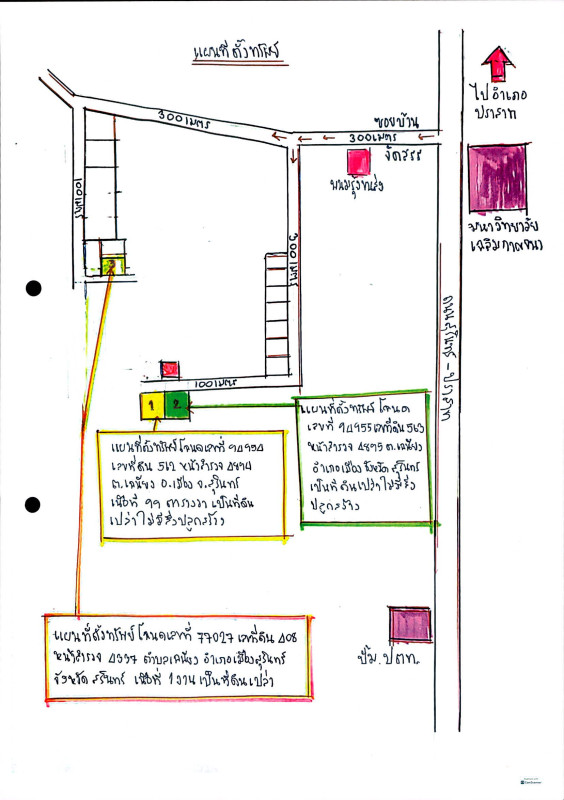 แผนที่ตั้งทรัพย์
ไปอำเภอ
ปราสาท
300 เมตร
ซอยบ้าน
300 เมตร
จัดสรร
มหาวิทยาลัย
เฉลิมกาญจนา
100 เมตร
300 เมตร
3
ถนนสุรินทร์ - ปราสาท
100 เมตร
1
2
แผนที่ตั้งทรัพย์ โฉนด
เลขที่ 94955 เลขที่ดิน 513
หน้าสำรวจ 4895 ต.เฉนียง
อำเภอเมือง จังหวัด สุรินทร์
เป็นที่ดินเปล่าไม่มีสิ่ง
ปลูกสร้าง
แผนที่ตั้งทรัพย์ โฉนดเลขที่ 94954
เลขที่ดิน 512 หน้าสำรวจ 4894
ต.เฉนียง อ.เมือง จ.สุรินทร์
เนื้อที่ 99 ตารางวา เป็นที่ดิน
เปล่าไม่มีสิ่งปลูกสร้าง
แผนที่ตั้งทรัพย์ โฉนดเลขที่ 77027 เลขที่ดิน 408
หน้าสำรวจ 4337 ตำบลเฉนียง อำเภอเมืองสุรินทร์
จังหวัด สุรินทร์ เนื้อที่ 1 งาน เป็นที่ดินเปล่า
ปั๊ม. ปตท.